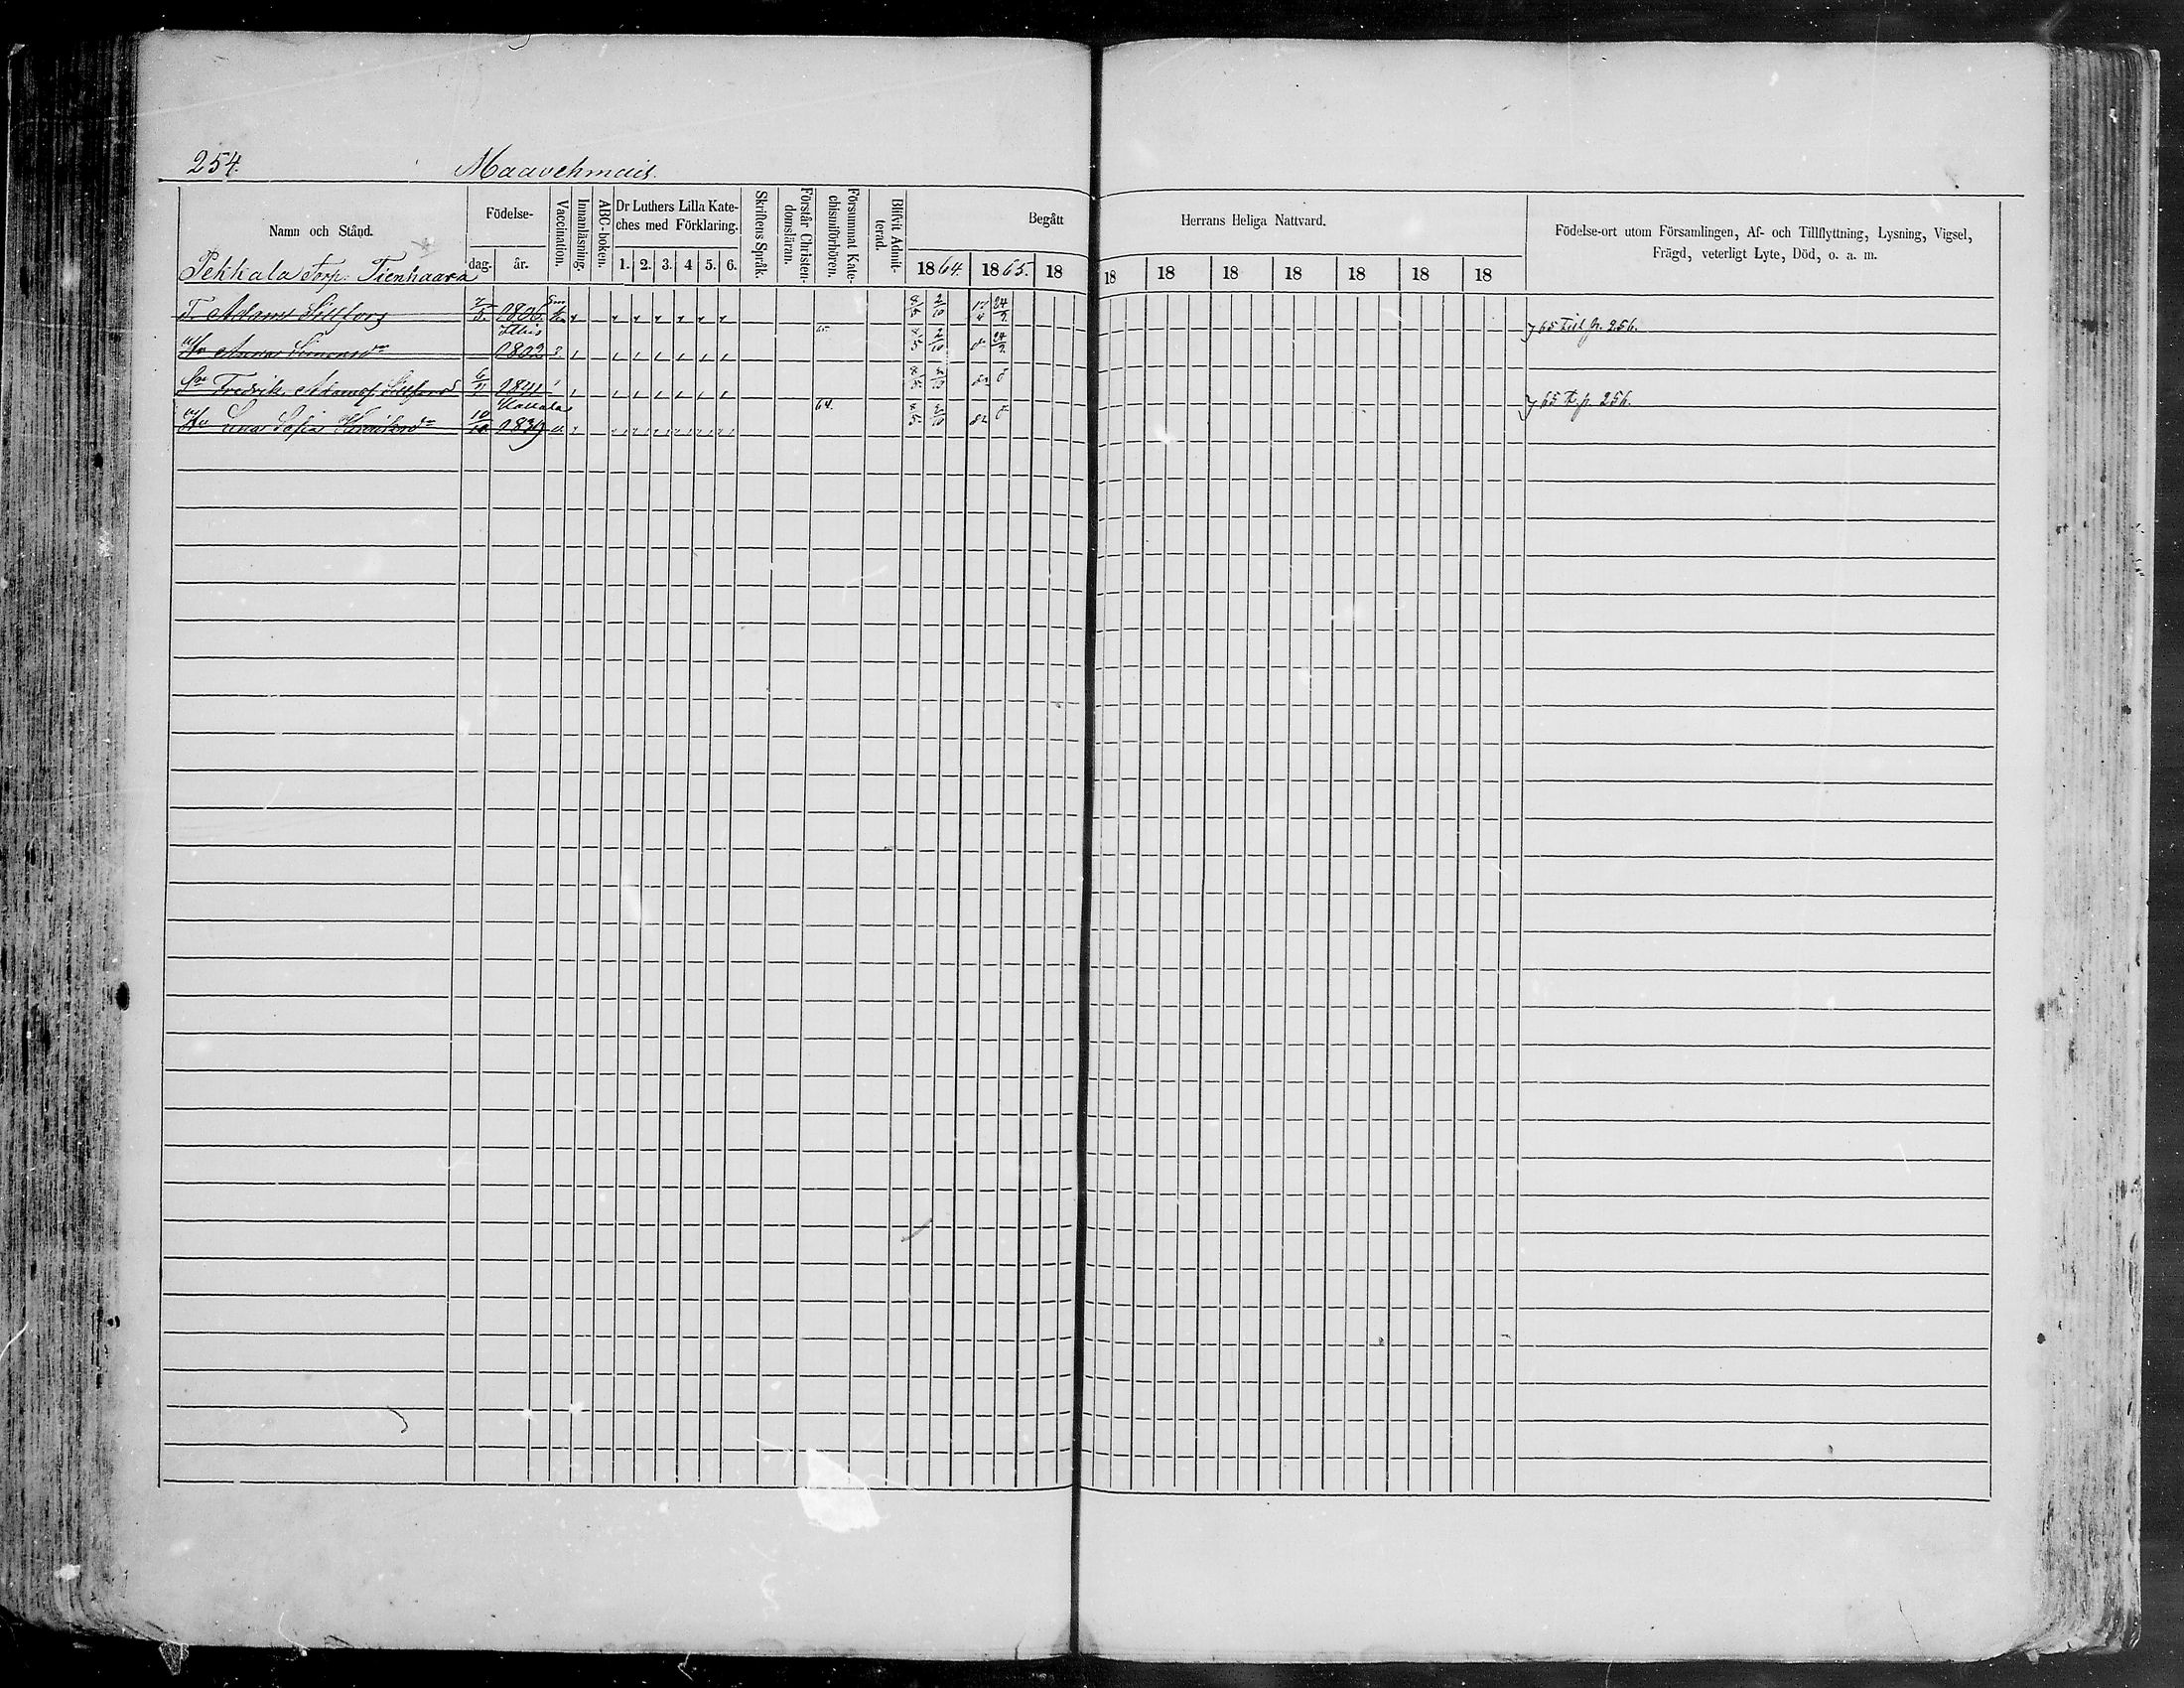 254. Maavehmais.
Namn och Stånd. Födelse- dag. år. Vaccination. Innanläsning. ABC-boken. Dr Luthers Lilla Kateches med Förklaring. 1. 2. 3. 4 5. 6. Skriftens Språk. Förstår Christendomsläran. Försummat Katechismiförhören. Blifvit Admitterad. Begått Herrans Heliga Nattvard. 1864. 1865. 18 18 18 18 18 18 18 18
Födelse-ort utom Församlingen, Af- och Tillflyttning, Lysning, Vigsel,
Frägd, veterligt Lyte, Död, o. a. m.
Pekkala Torp: Tienhaara
T. Adam Sillfors 7/5. 1806. 8/5 2/10 24/9.
65 Till p. 256.
Anna Simonsdr 1802 8/5 2/10 24/9.
Sn Fredrik Adamsf. Sillfors 6/11 1841 8/5 2/10
65 T. p. 256.
64.
Lena Sofia 10/10 1839 8/5 2/10